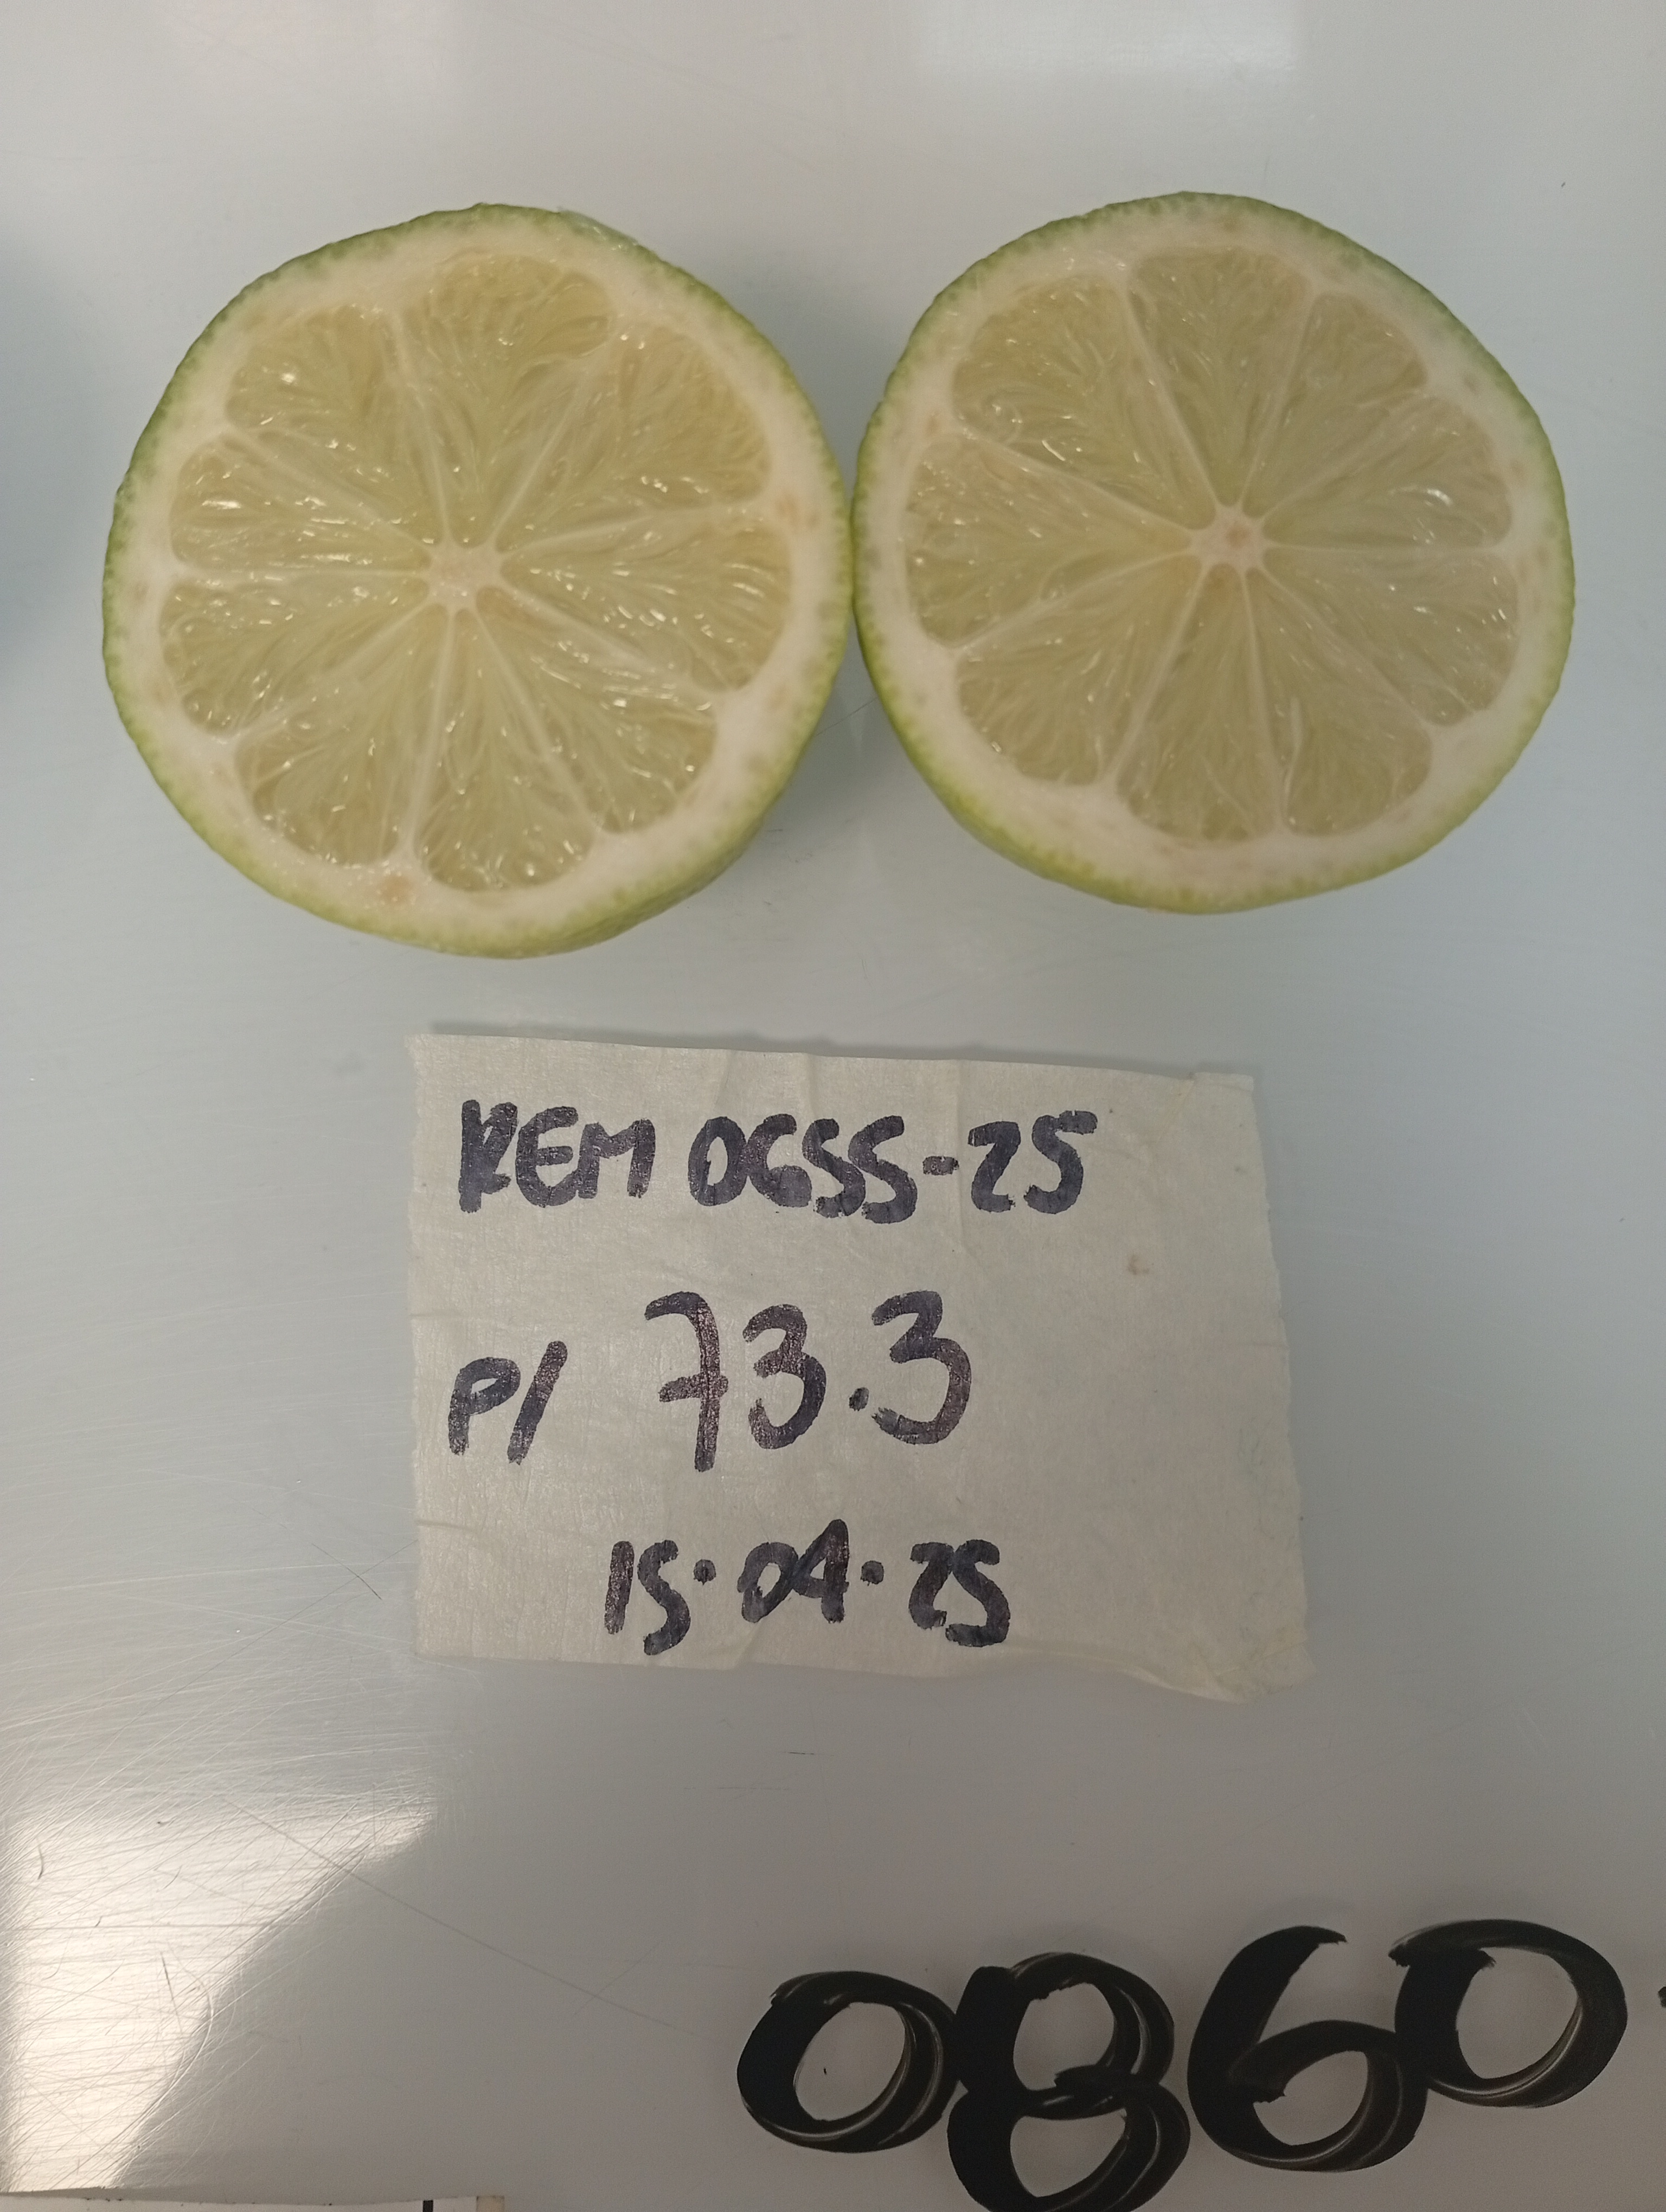 REM 0655-25
P/ 73.3
15.04.25
0860